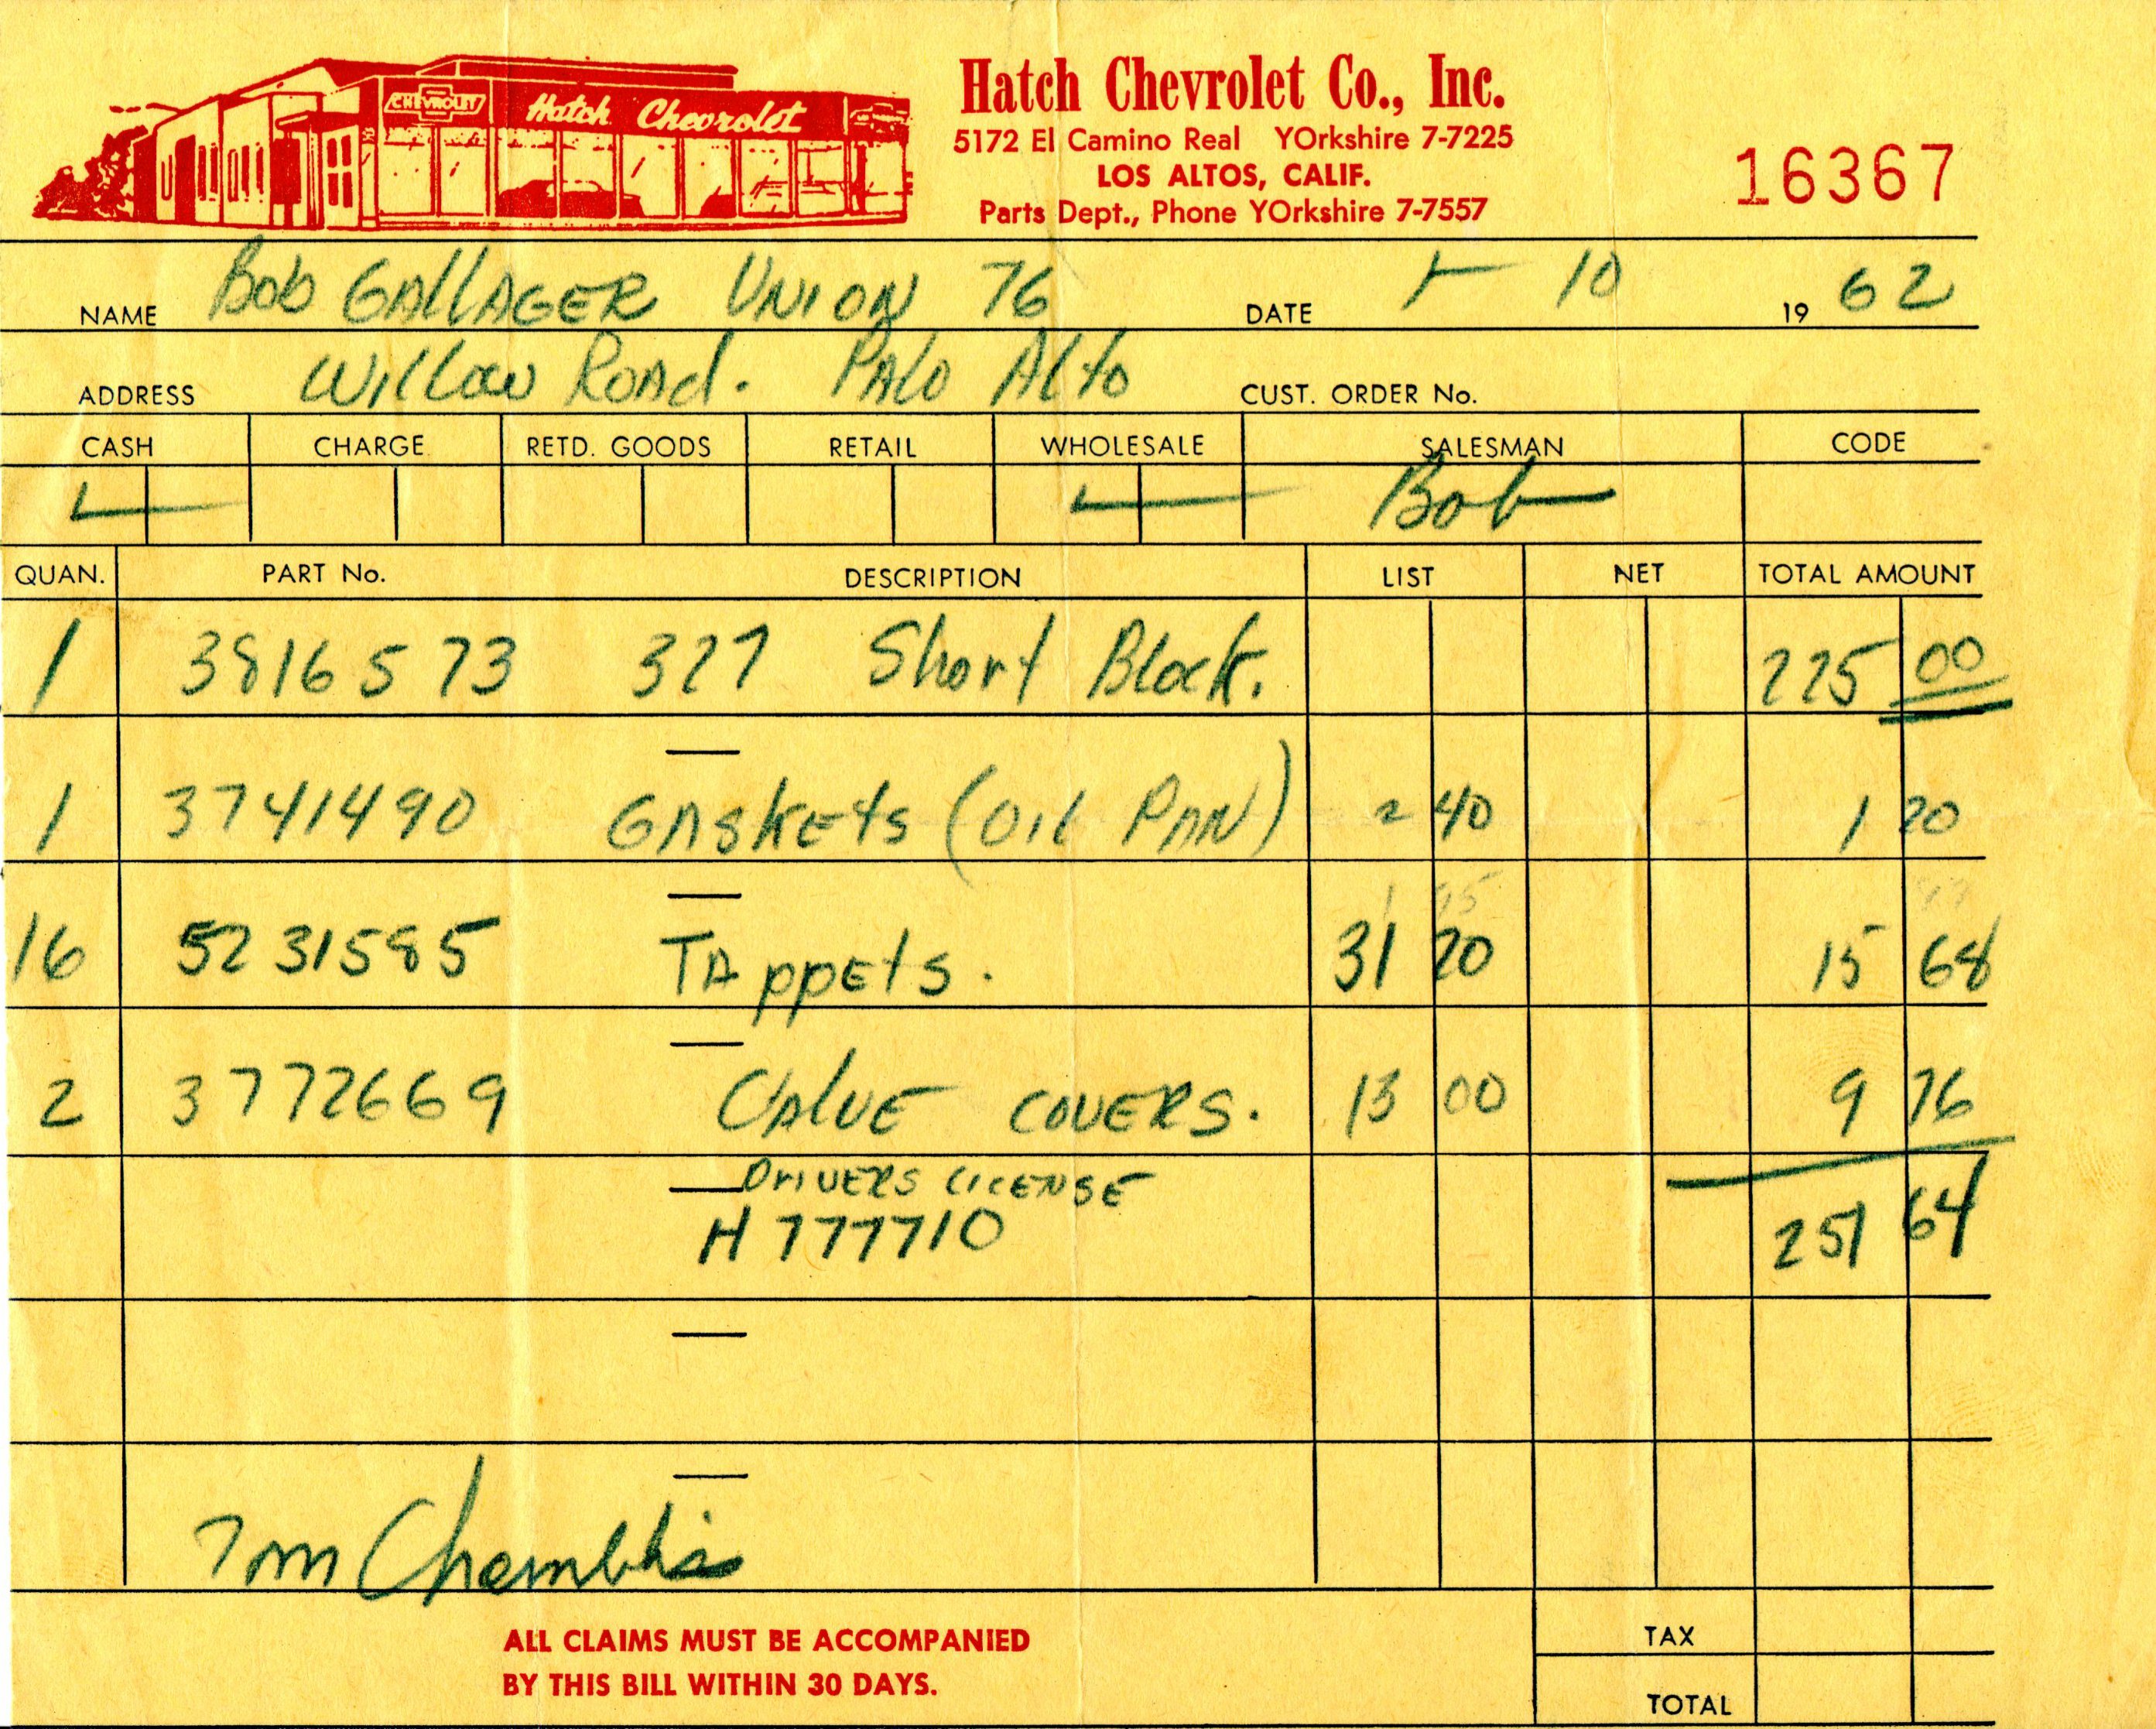 CHEVROLET Hatch Chevrolet
Hatch Chevrolet Co., Inc.
5172 El Camino Real YOrkshire 7-7225
LOS ALTOS, CALIF.
Parts Dept., Phone YOrkshire 7-7557
16367
NAME Bob GAllAGER UNION 76 DATE 10 19 62
ADDRESS Willow ROAd. PAlo Alto CUST. ORDER No.
CASH CHARGE RETD. GOODS RETAIL WHOLESALE SALESMAN CODE
Bob
QUAN. PART No. DESCRIPTION LIST NET TOTAL AMOUNT
1 3816573 327 Short Block. 225 00
1 3741490 GASKEts (OIL PAN) 2 40 1 20
16 5231585 TAppEts. 31 20 15 68
2 3772669 VAlVE COVERS. 13 00 9 76
DRIVERS LICENSE
H777710 251 64
Tom Chambliss
ALL CLAIMS MUST BE ACCOMPANIED
BY THIS BILL WITHIN 30 DAYS.
TAX
TOTAL